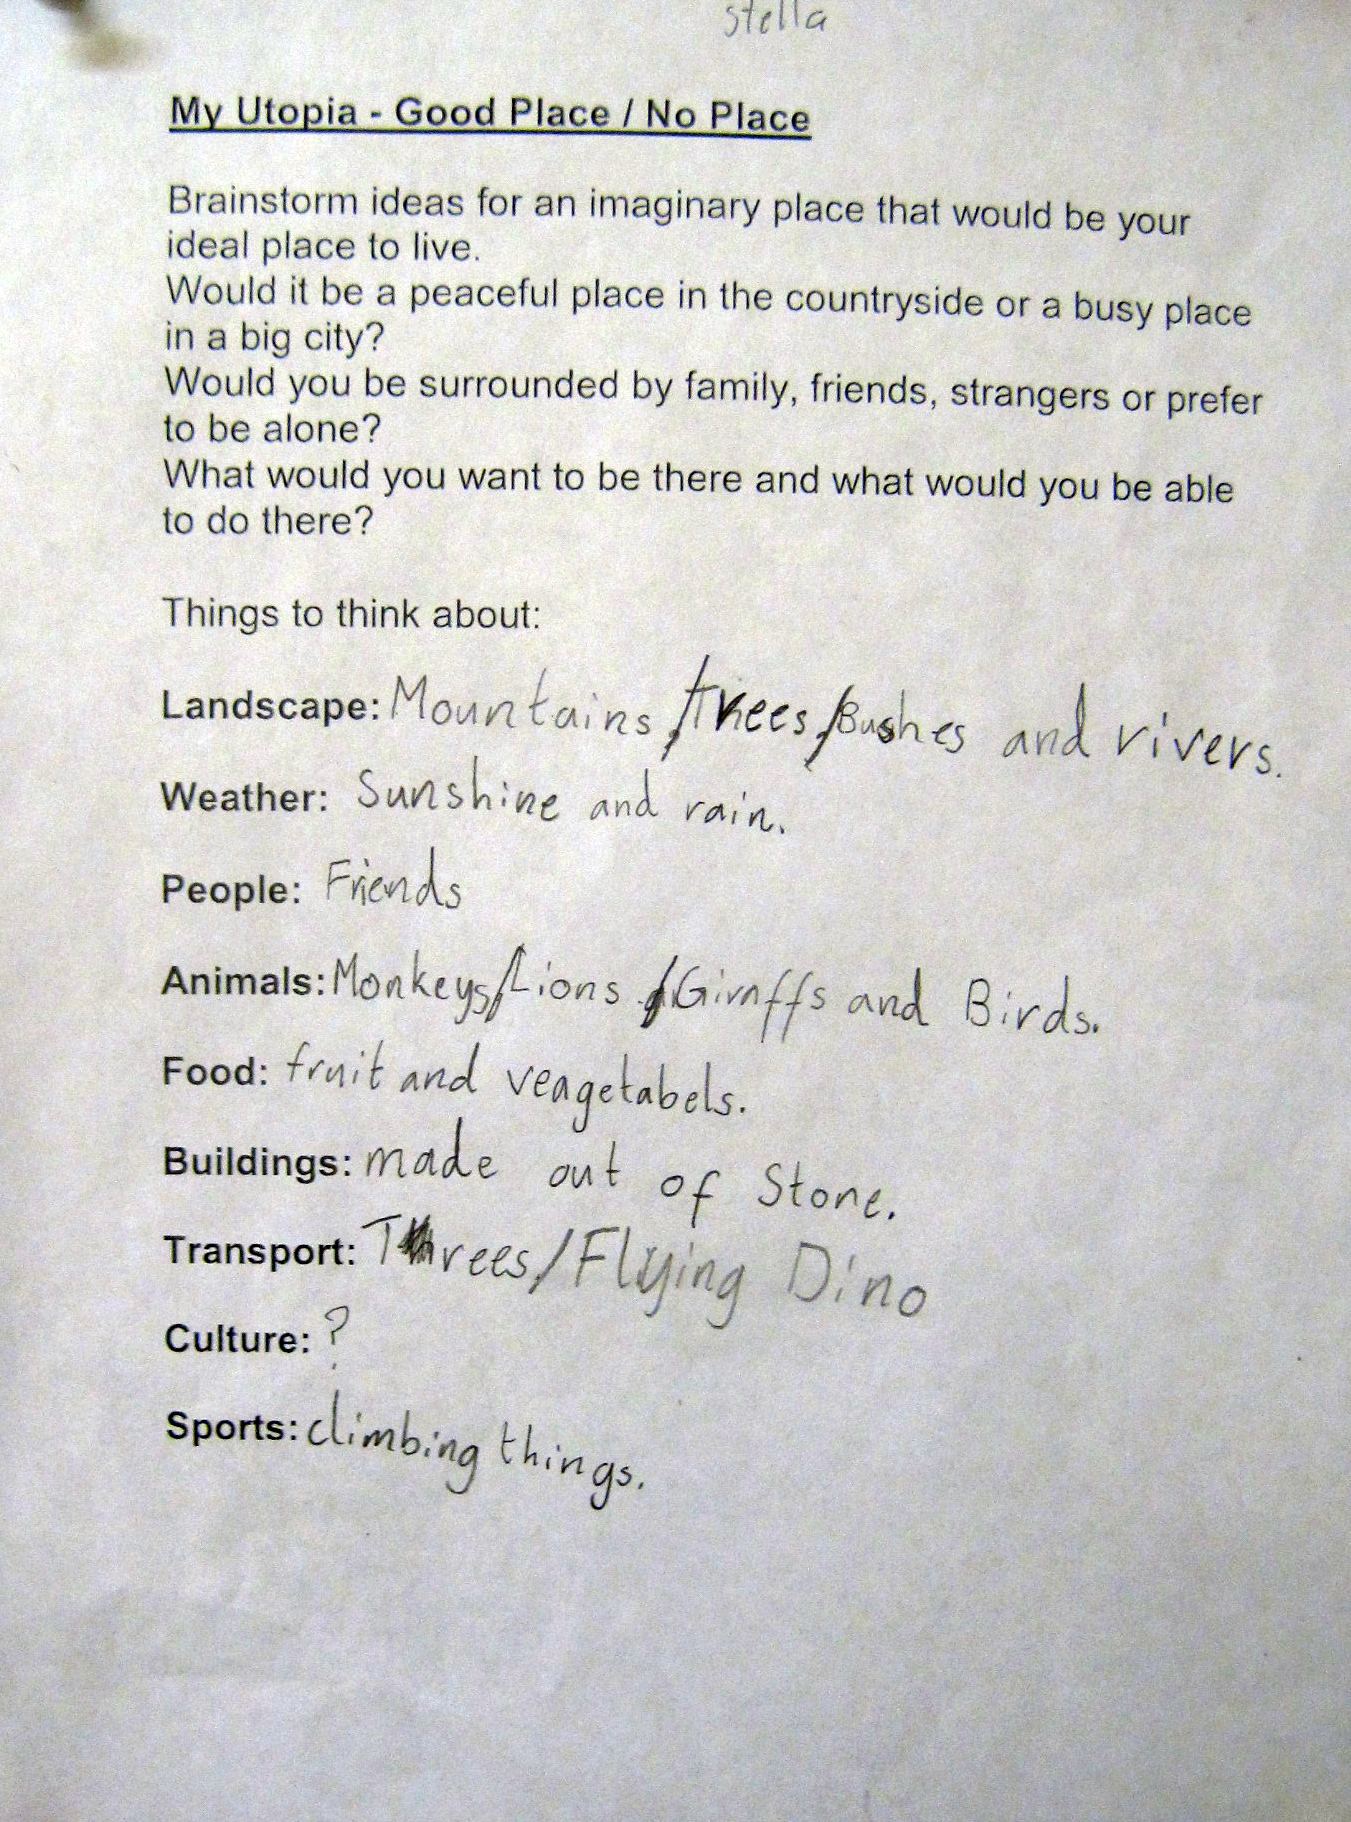 stella
My Utopia - Good Place / No Place
Brainstorm ideas for an imaginary place that would be your
ideal place to live.
Would it be a peaceful place in the countryside or a busy place
in a big city?
Would you be surrounded by family, friends, strangers or prefer
to be alone?
What would you want to be there and what would you be able
to do there?
Things to think about:
Landscape: Mountains,/trees,/Bushes and rivers.
Weather: Sunshine and rain.
People: Friends
Animals: Monkeys,/Lions,/Giraffs and Birds.
Food: fruit and veagetabels.
Buildings: made out of Stone.
Transport: Trees/Flying Dino
Culture: ?
Sports: climbing things.